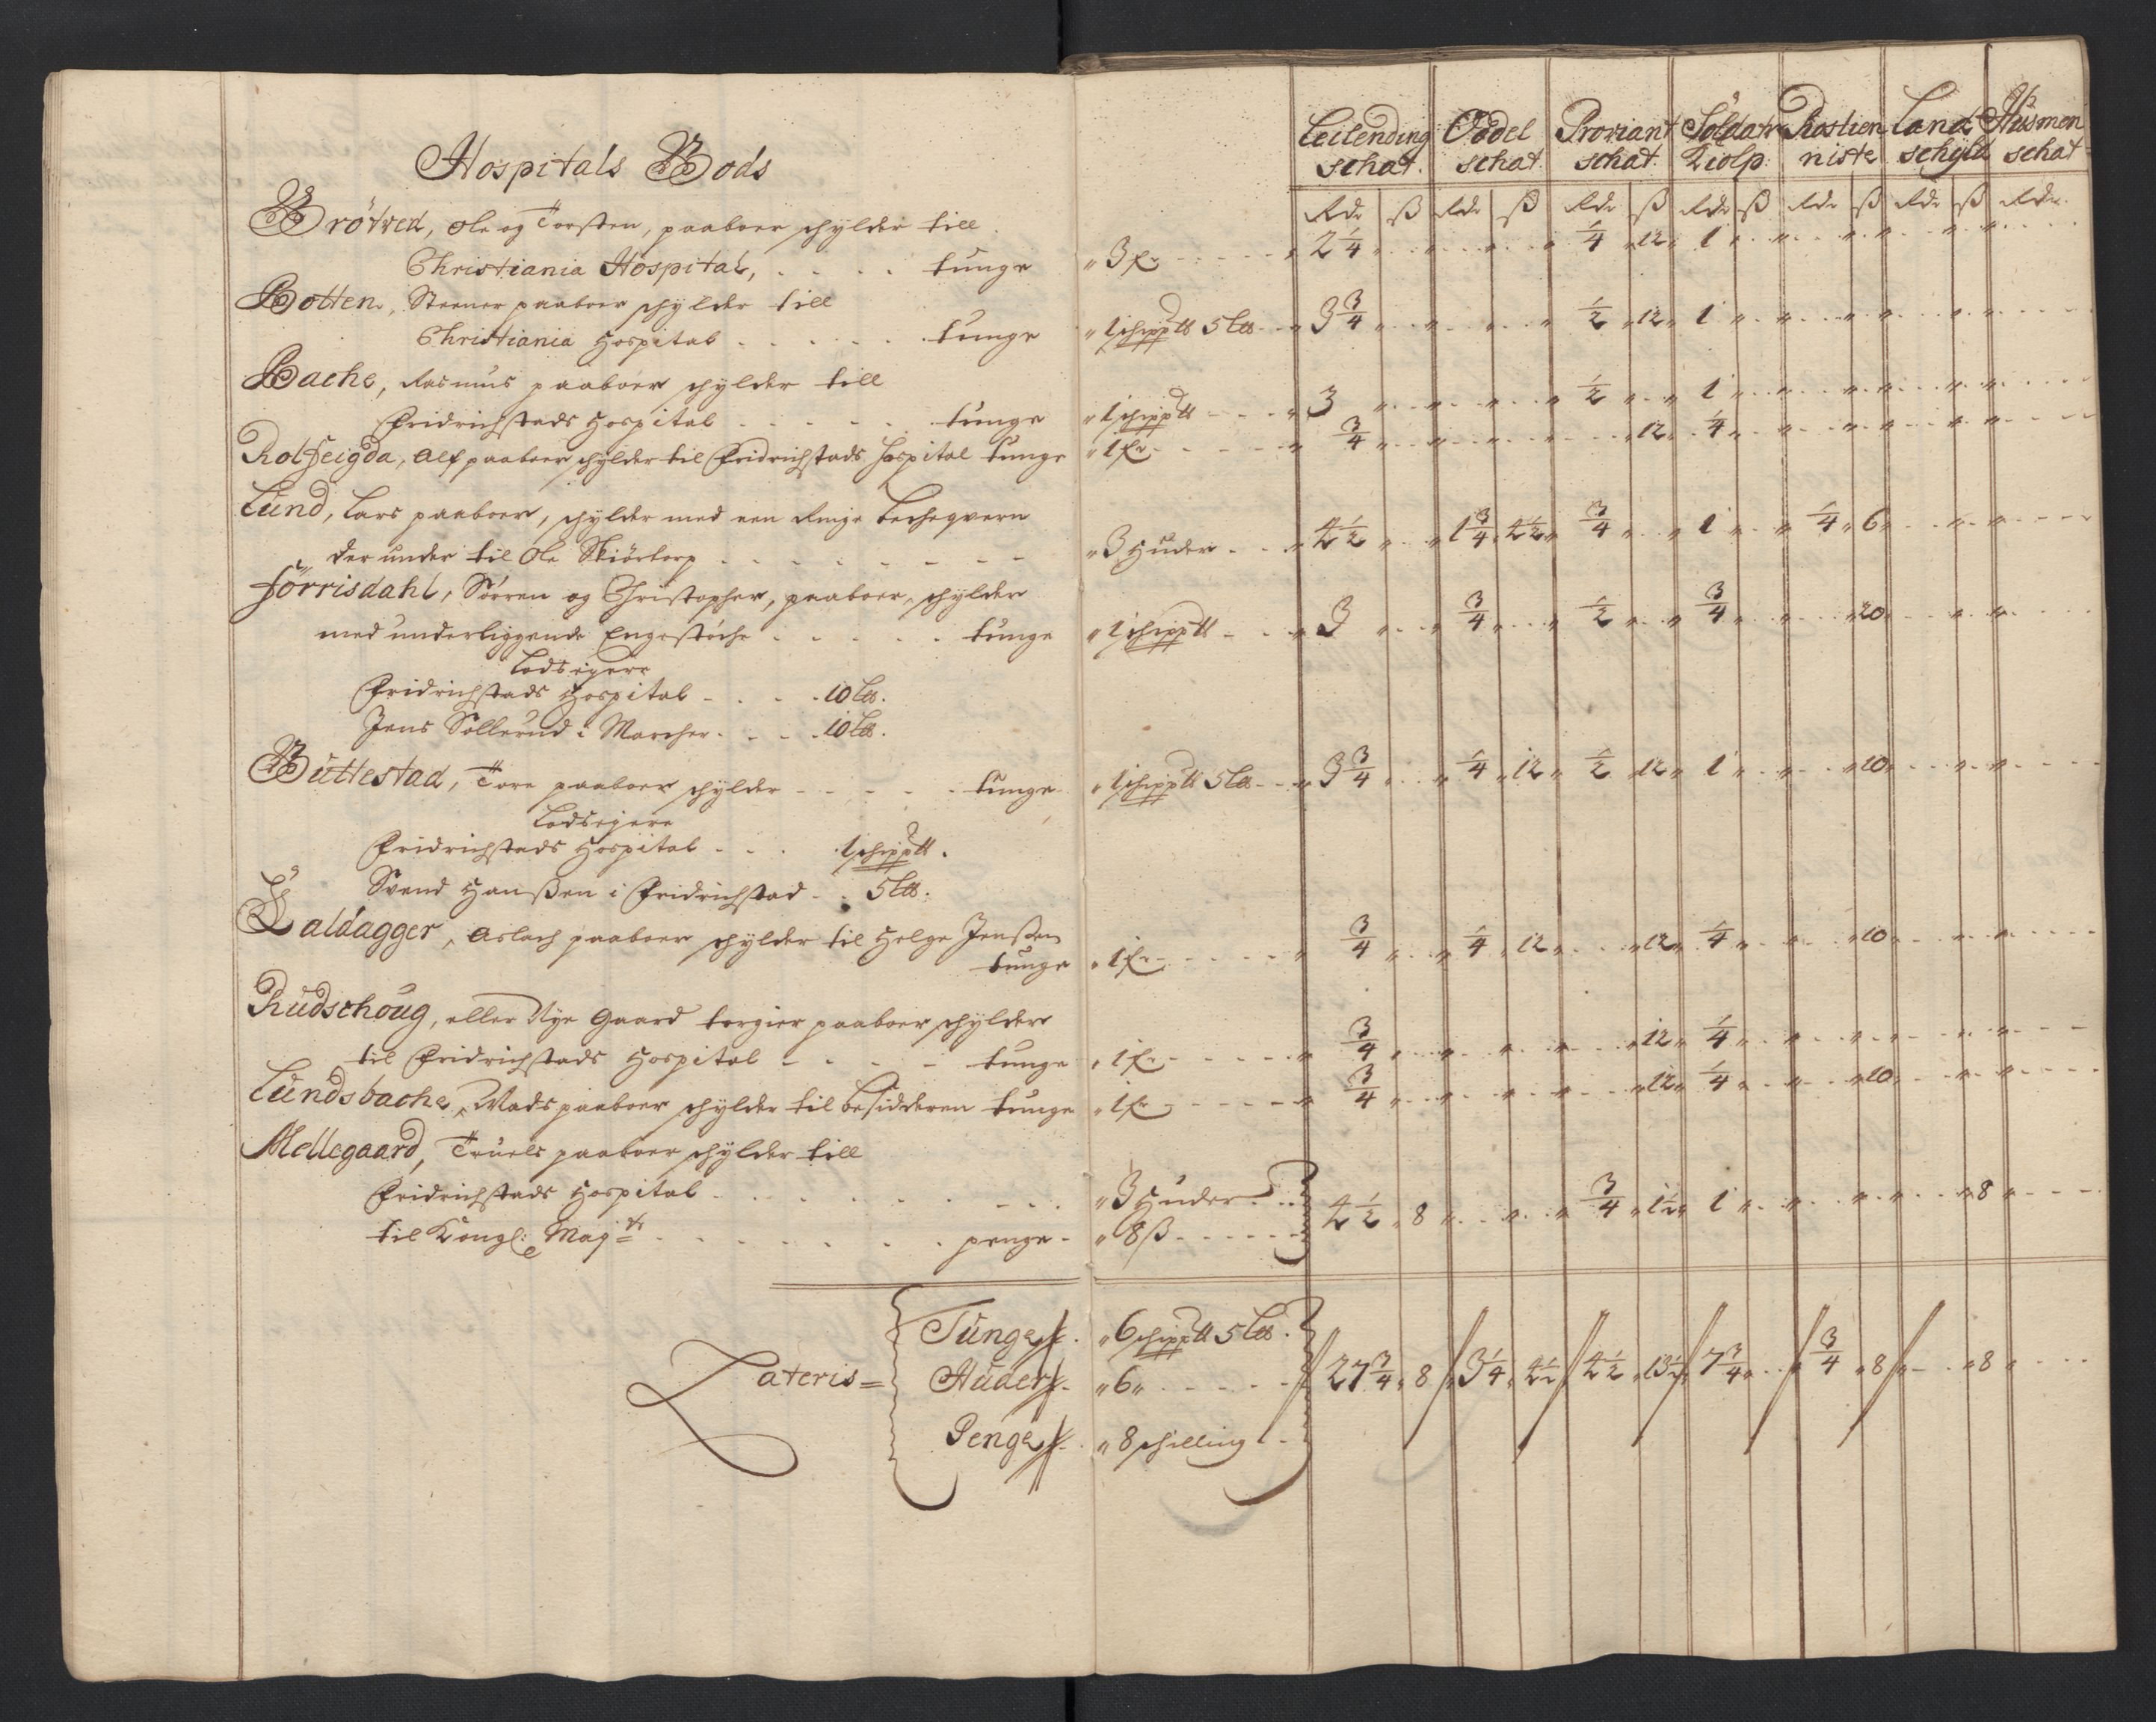 Hospitals Gods
Leilending schat. Oddel schat. Proviant schat. Soldatr Kiolp: Rostien niste Land schyld Husmen schat
Rdr ß Rdr ß Rdr ß Rdr ß Rdr ß Rdr ß Rdr
Brötved, Ole og Torsten, paaboer schylder till
Christiania Hospital, tunge 3 fr 2 1/4 1/4 12 1
Botten, Steener paaboer schylder till
Christiania Hospital tunge 1 schippd 5 Ltt 3 3/4 1/2 12 1
Bache, Rasmus paaboer schylder till
Fridrichstads Hospital tunge 1 schippd 3 1/2 1
Rolfseigda, Alf paaboer schylder til Fridrichstads Hospital tunge 1 fr 3/4 12 1/4
Lund, Lars paaboer, schylder med een Ringe bechequern
der under til Ole Skiörtorp 3 Huder 4 1/2 1 3/4 4 1/2 3/4 1 1/4 6
Jörrisdahl, Sörren og Christopher, paaboer, schylder
med underliggende Engestöche tunge 1 schippd 3 3/4 1/2 3/4 20
Lodseyere
Fridrichstads Hospital 10 Ltt.
Jens Sollerud i Marcher 10 Ltt.
Buttestad, Tore paaboer schylder tunge 1 schippd 5 Ltt 3 3/4 1/4 12 1/2 12 1 10
Lodseyere
Fridrichstads Hospital 1 schippd.
Svend Hanßen i Fridrichstad 5 Ltt.
Kaldagger, Aslach paaboer schylder til Helge Jenßen
tunge 1 fr 3/4 1/4 12 12 1/4 10
Rudschoug, eller Nye Gaard torgier paaboer schylder
til Fridrichstads Hospital tunge 1 fr 3/4 12 1/4
Lundsbache, Mads paaboer schylder til besidderen tunge 1 fr 3/4 12 1/4 10
Mellegaard, Truels paaboer schylder till
Fridrichstads Hospital 3 Huder 4 1/2 8 3/4 1 1/2 1 8
til Kongl: Mayt penge 8 ß
Tunge 6 schippd 5 Ltt.
Lateris = Huder 6 27 3/4 8 3 1/4 4 1/2 4 1/2 13 1/2 7 3/4 3/4 8 8
Penge 8 schilling